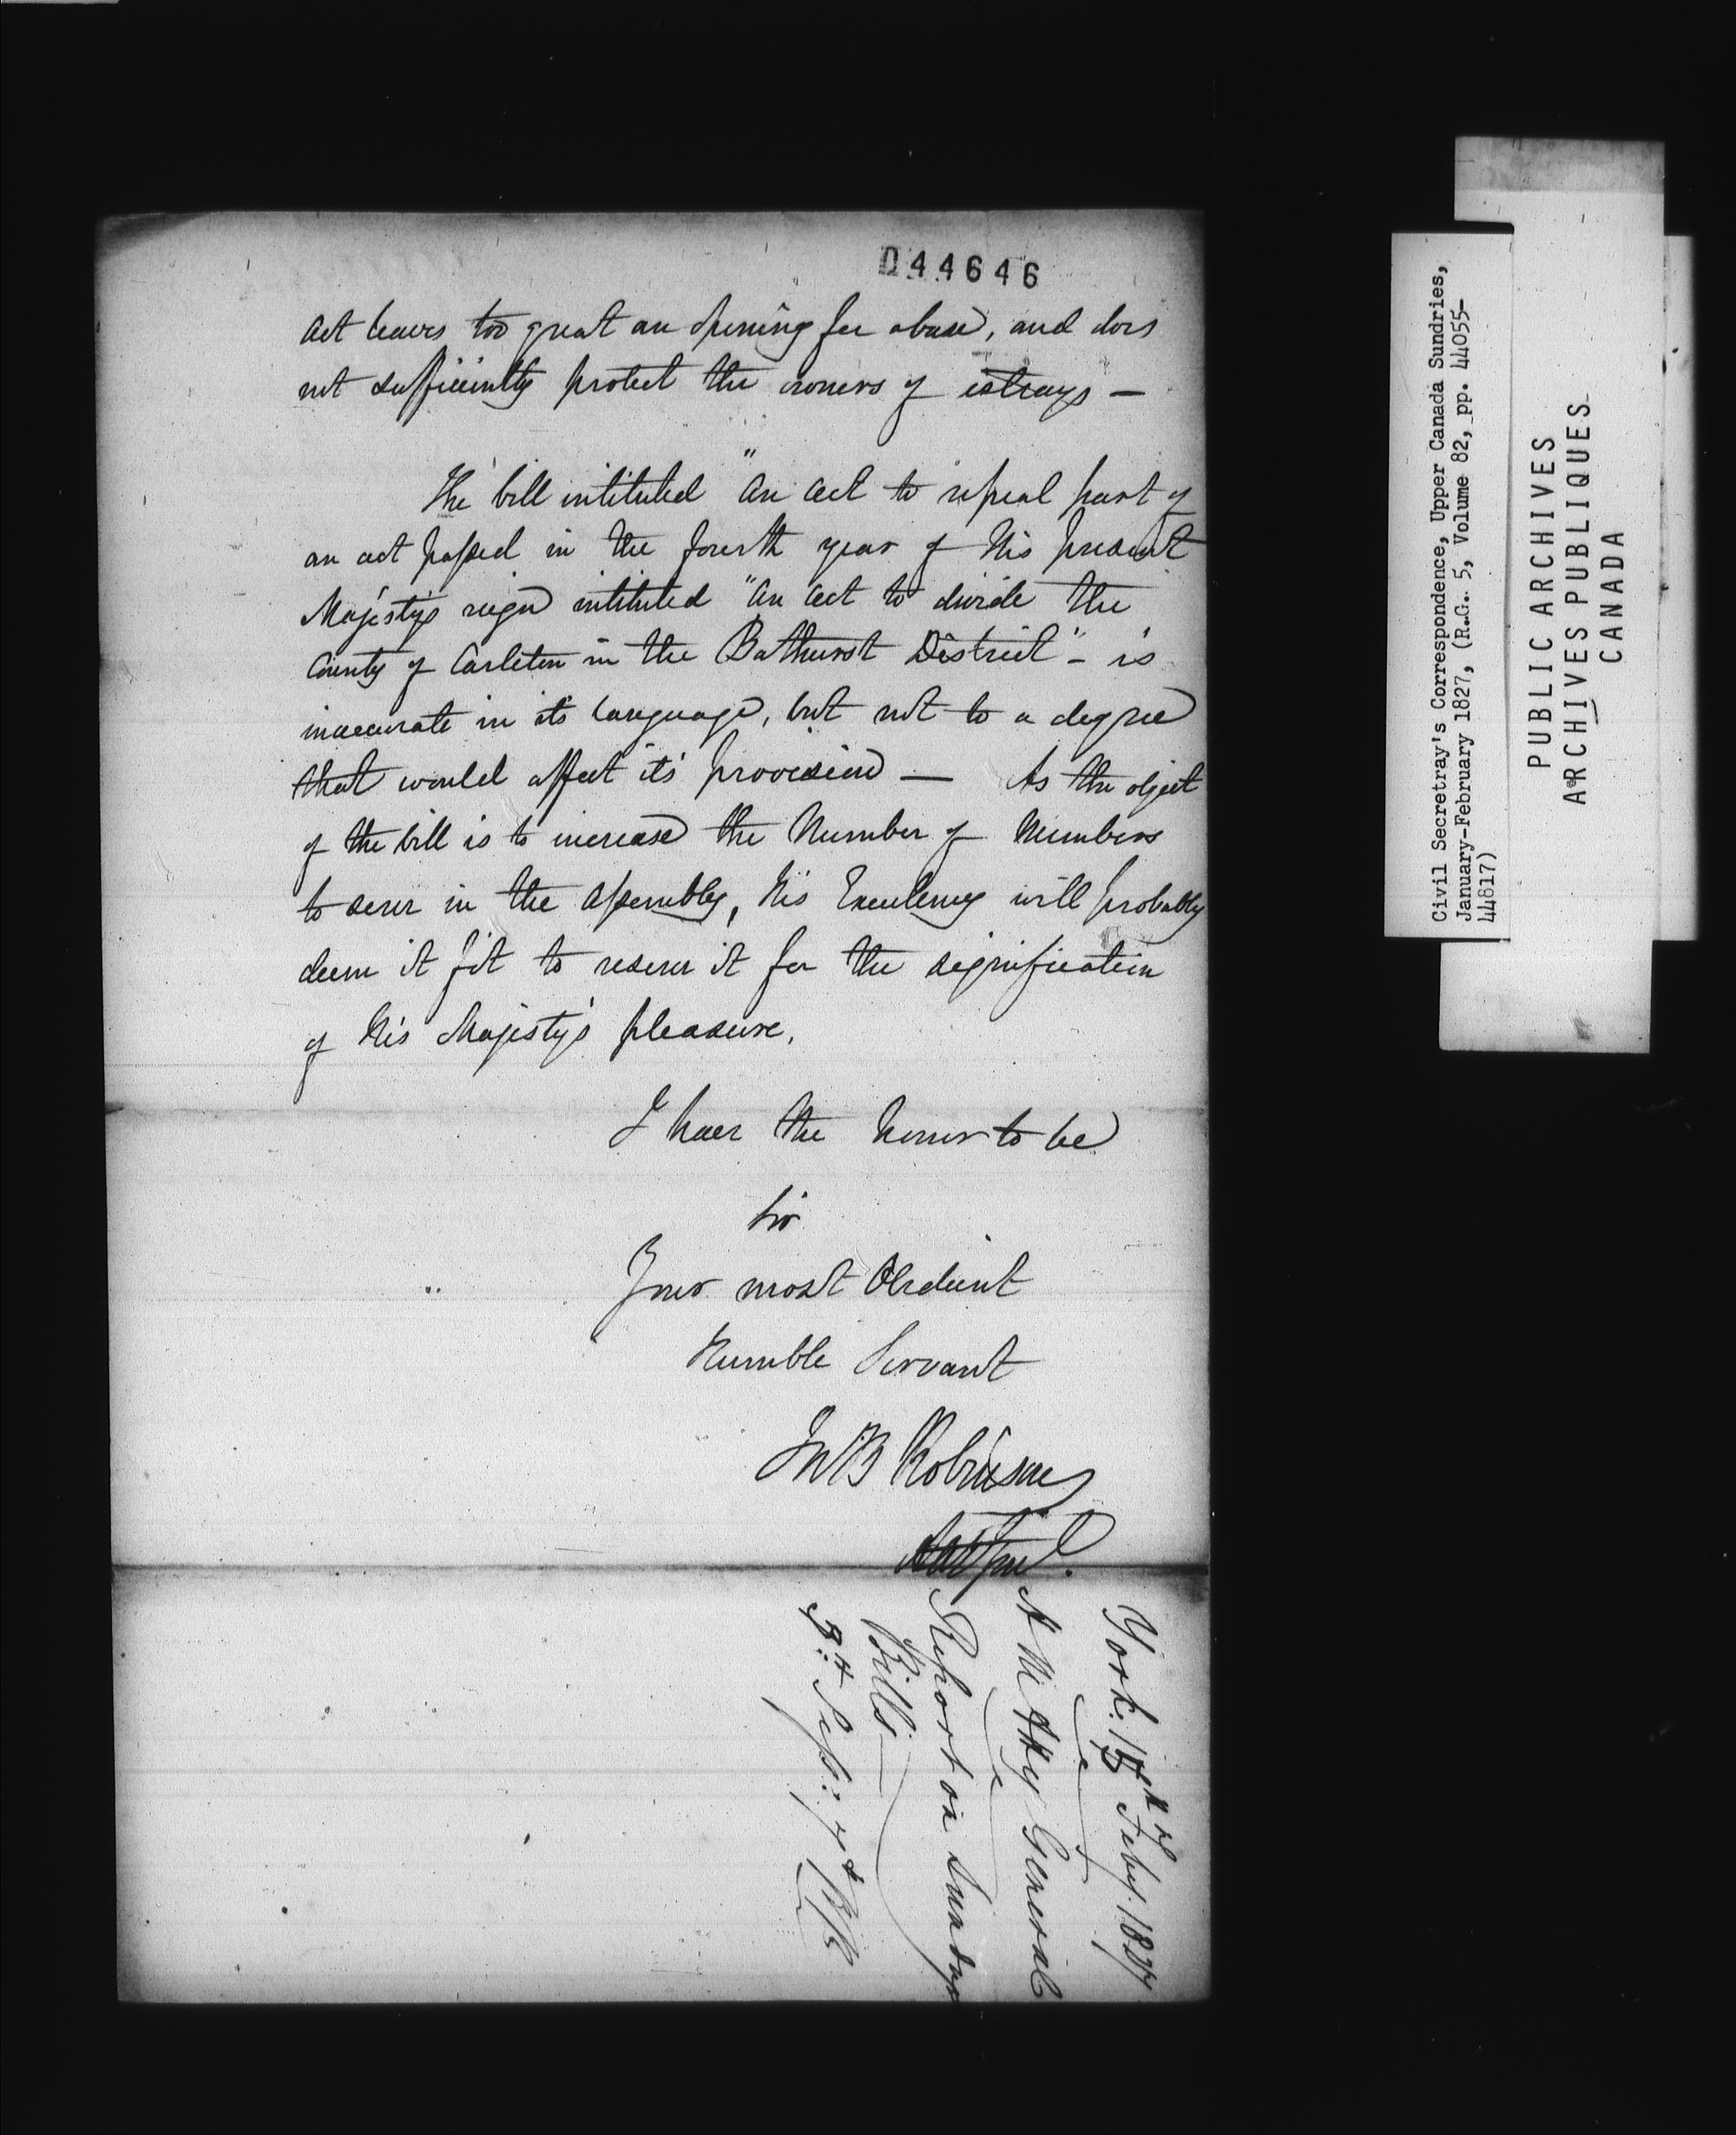 044646
act leaves too great an opening for abuse, and does
not sufficiently protect the owners of estrays —
The bill intituled "An act to repeal part of
an act passed in the fourth year of His present
Majesty's reign intituled "An act to divide the
County of Carleton in the Bathurst District" – is
inaccurate in it's language, but not to a degree
that would affect it's provision — As the object
of the bill is to increase the Number of Members
to serve in the Assembly, His Excellency will probably
deem it fit to reserve it for the signification
of His Majesty's pleasure.
I have the honor to be
Sir
Your most Obedient
Humble Servant
Jno B Robinson
Atty Genl.
York. Feby. 1827
Atty General
Report on Sundry
Bills
Civil Secretray's Correspondence, Upper Canada Sundries,
January-February 1827, (R.G. 5, Volume 82, pp. 44055-
44817)
PUBLIC ARCHIVES
ARCHIVES PUBLIQUES
CANADA